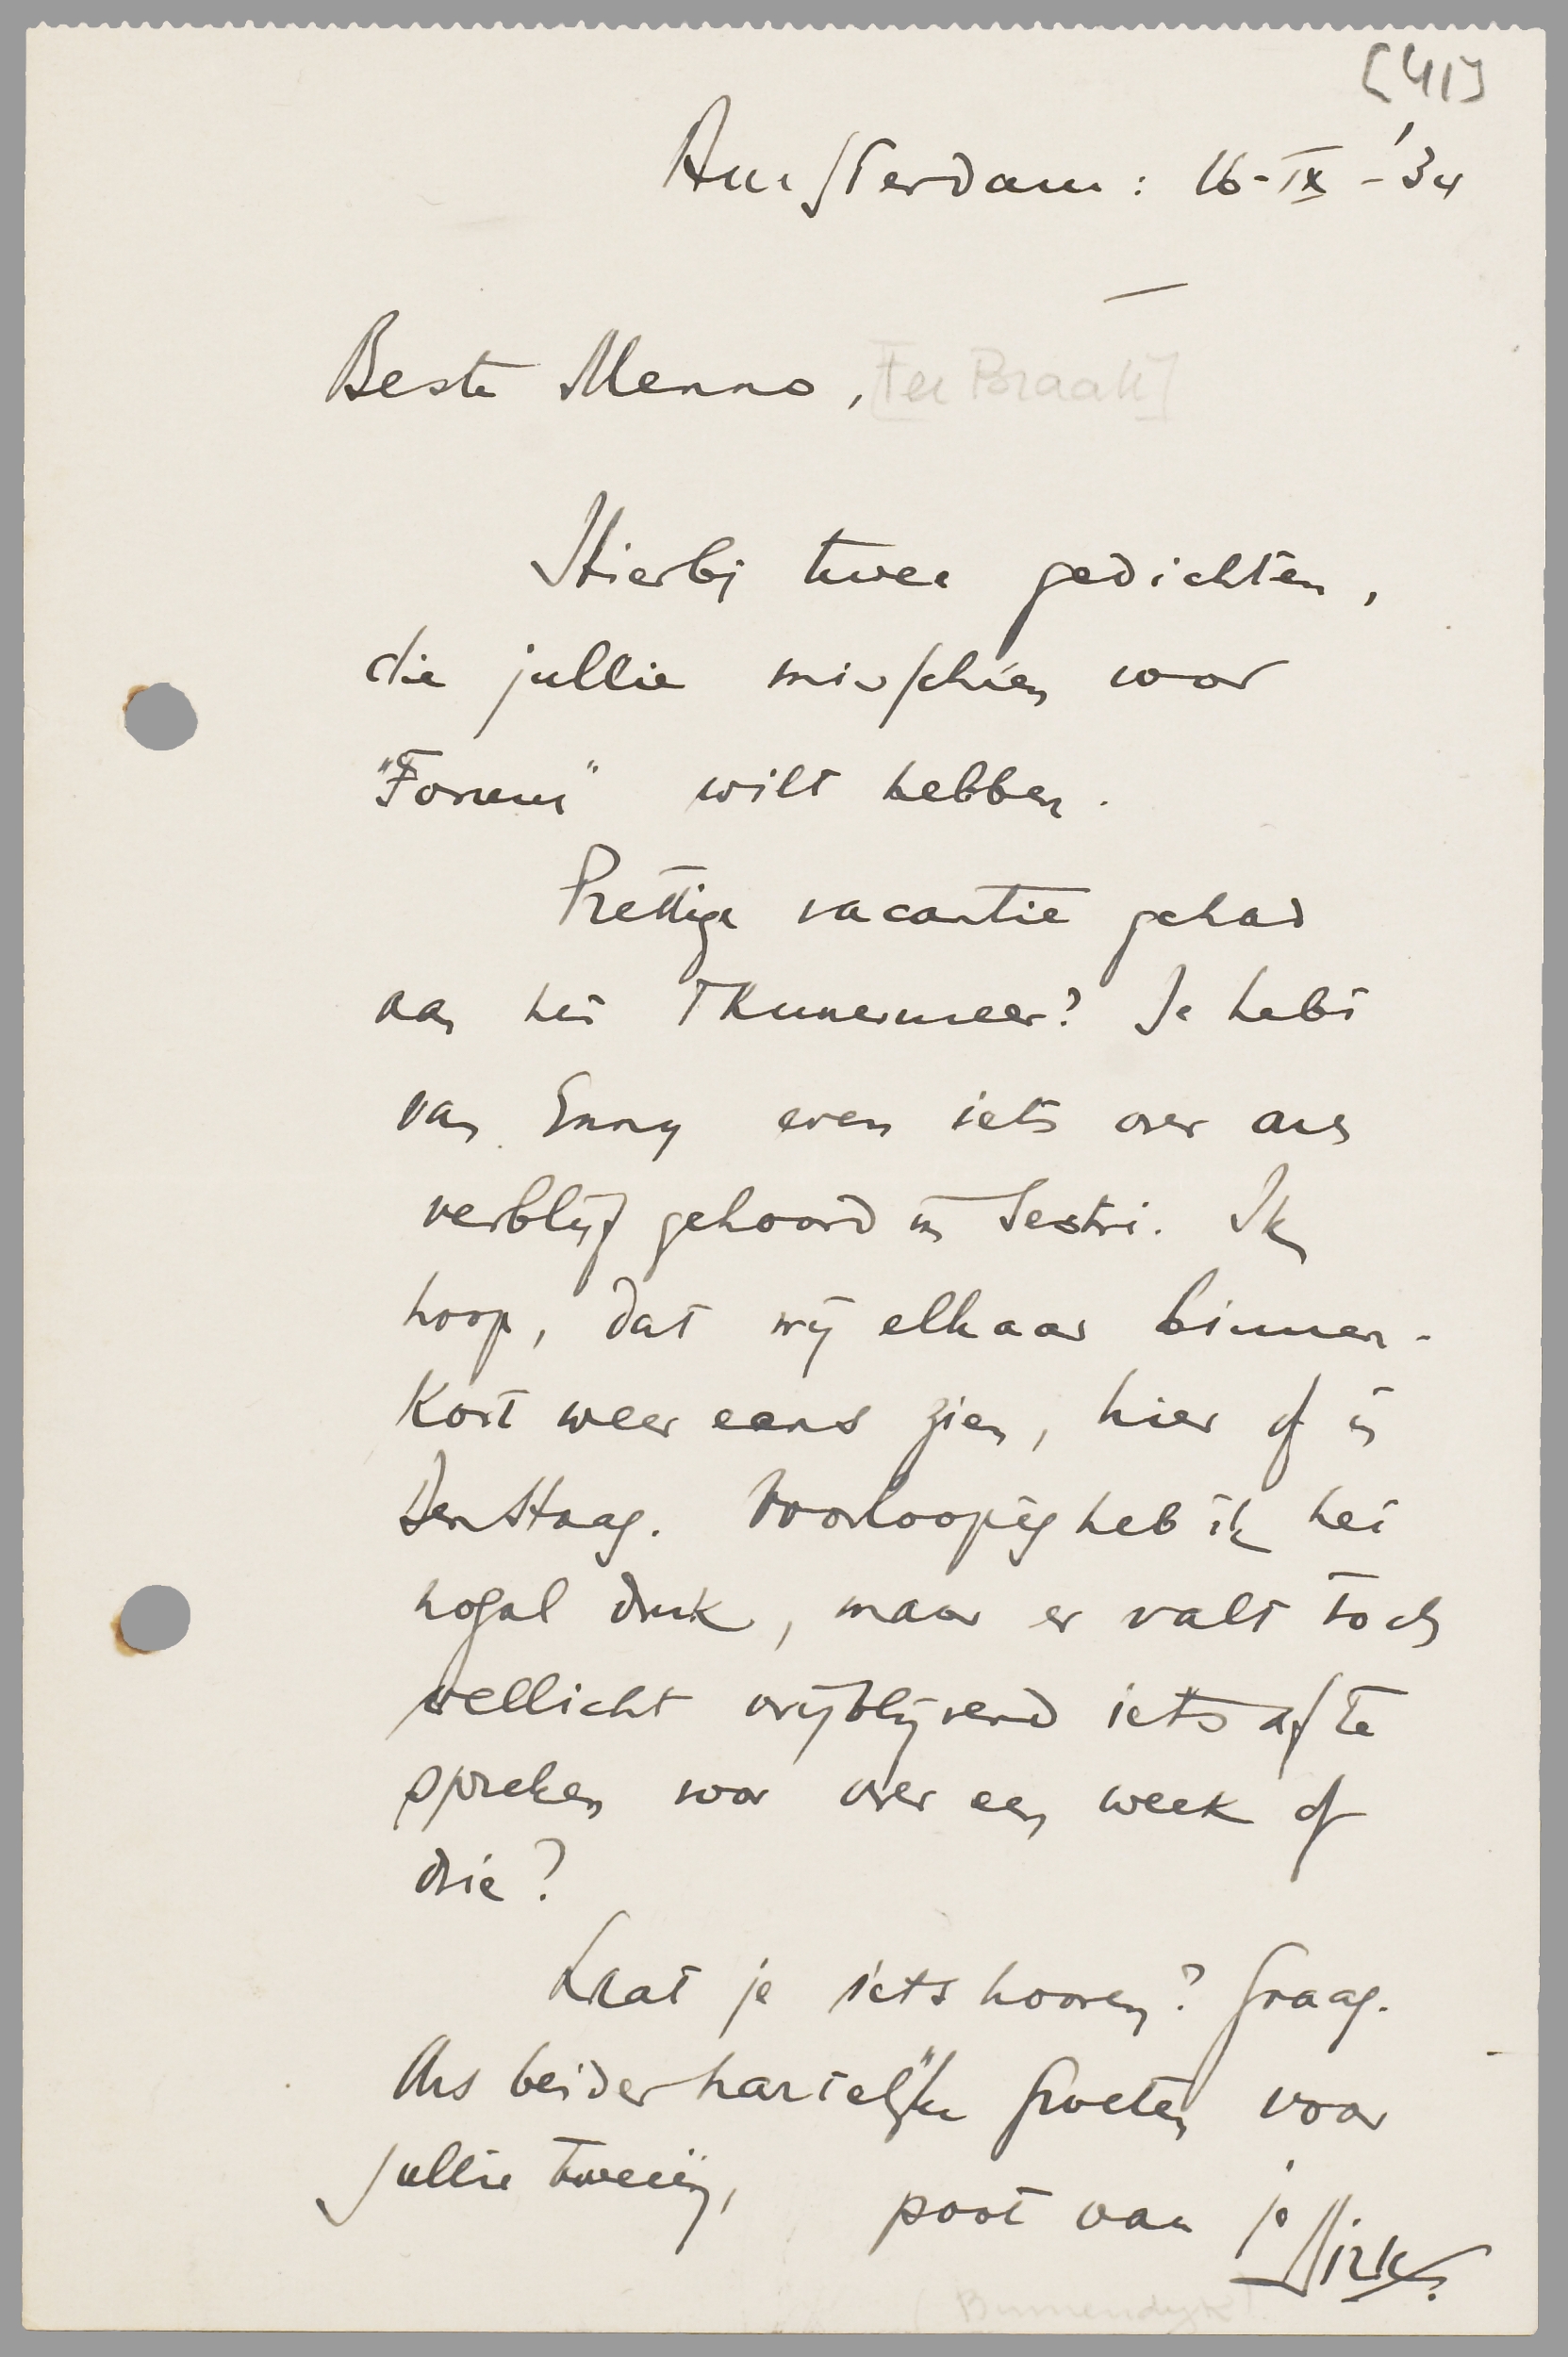 [41]
Amsterdam: 16-IX-'34
Beste Menno, [Ter Braak]
Hierbij twee gedichten,
die jullie misschien voor
"Forum" wilt hebben.
Prettige vacantie gehad
aan het Thunermeer? Je hebt
van Enny even iets over ons
verblijf gehoord in Sestri. Ik
hoop, dat wij elkaar binnen-
kort weer eens zien, hier of in
Den Haag. Voorloopig heb ik het
nogal druk, maar er valt toch
wellicht vrijblijvend iets af te
spreken voor over een week of
drie?
Laat je iets hooren? Graag.
Ons beider hartelijke groeten voor
jullie tweeën,
poot van je
Dirk.
(Binnendijk)